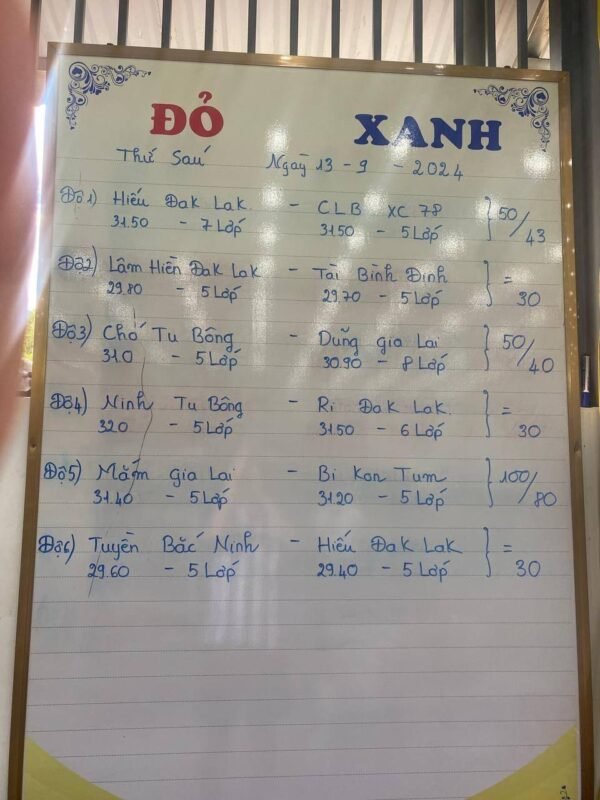 ĐỎ XANH
Thứ Sáu Ngày 13 - 9 - 2024
Độ 1) Hiếu Đak Lak - CLB XC 78 } 50/43
3150 - 7 Lớp 3150 - 5 Lớp
Độ 2) Lâm Hiền Đak Lak - Tài Bình Định } =
29.80 - 5 Lớp 29.70 - 5 Lớp 30
Độ 3) Chó Tu Bông - Dũng gia Lai } 50/40
310 - 5 Lớp 30.90 - 8 Lớp
Độ 4) Ninh Tu Bông - Ri Đak Lak. } =
320 - 5 Lớp 3150 - 6 Lớp 30
Độ 5) Mắm gia Lai - Bi Kon Tum } 100/80
31.40 - 5 Lớp 3120 - 5 Lớp
Độ 6) Tuyền Bắc Ninh - Hiếu Đak Lak } =
29.60 - 5 Lớp 29.40 - 5 Lớp 30